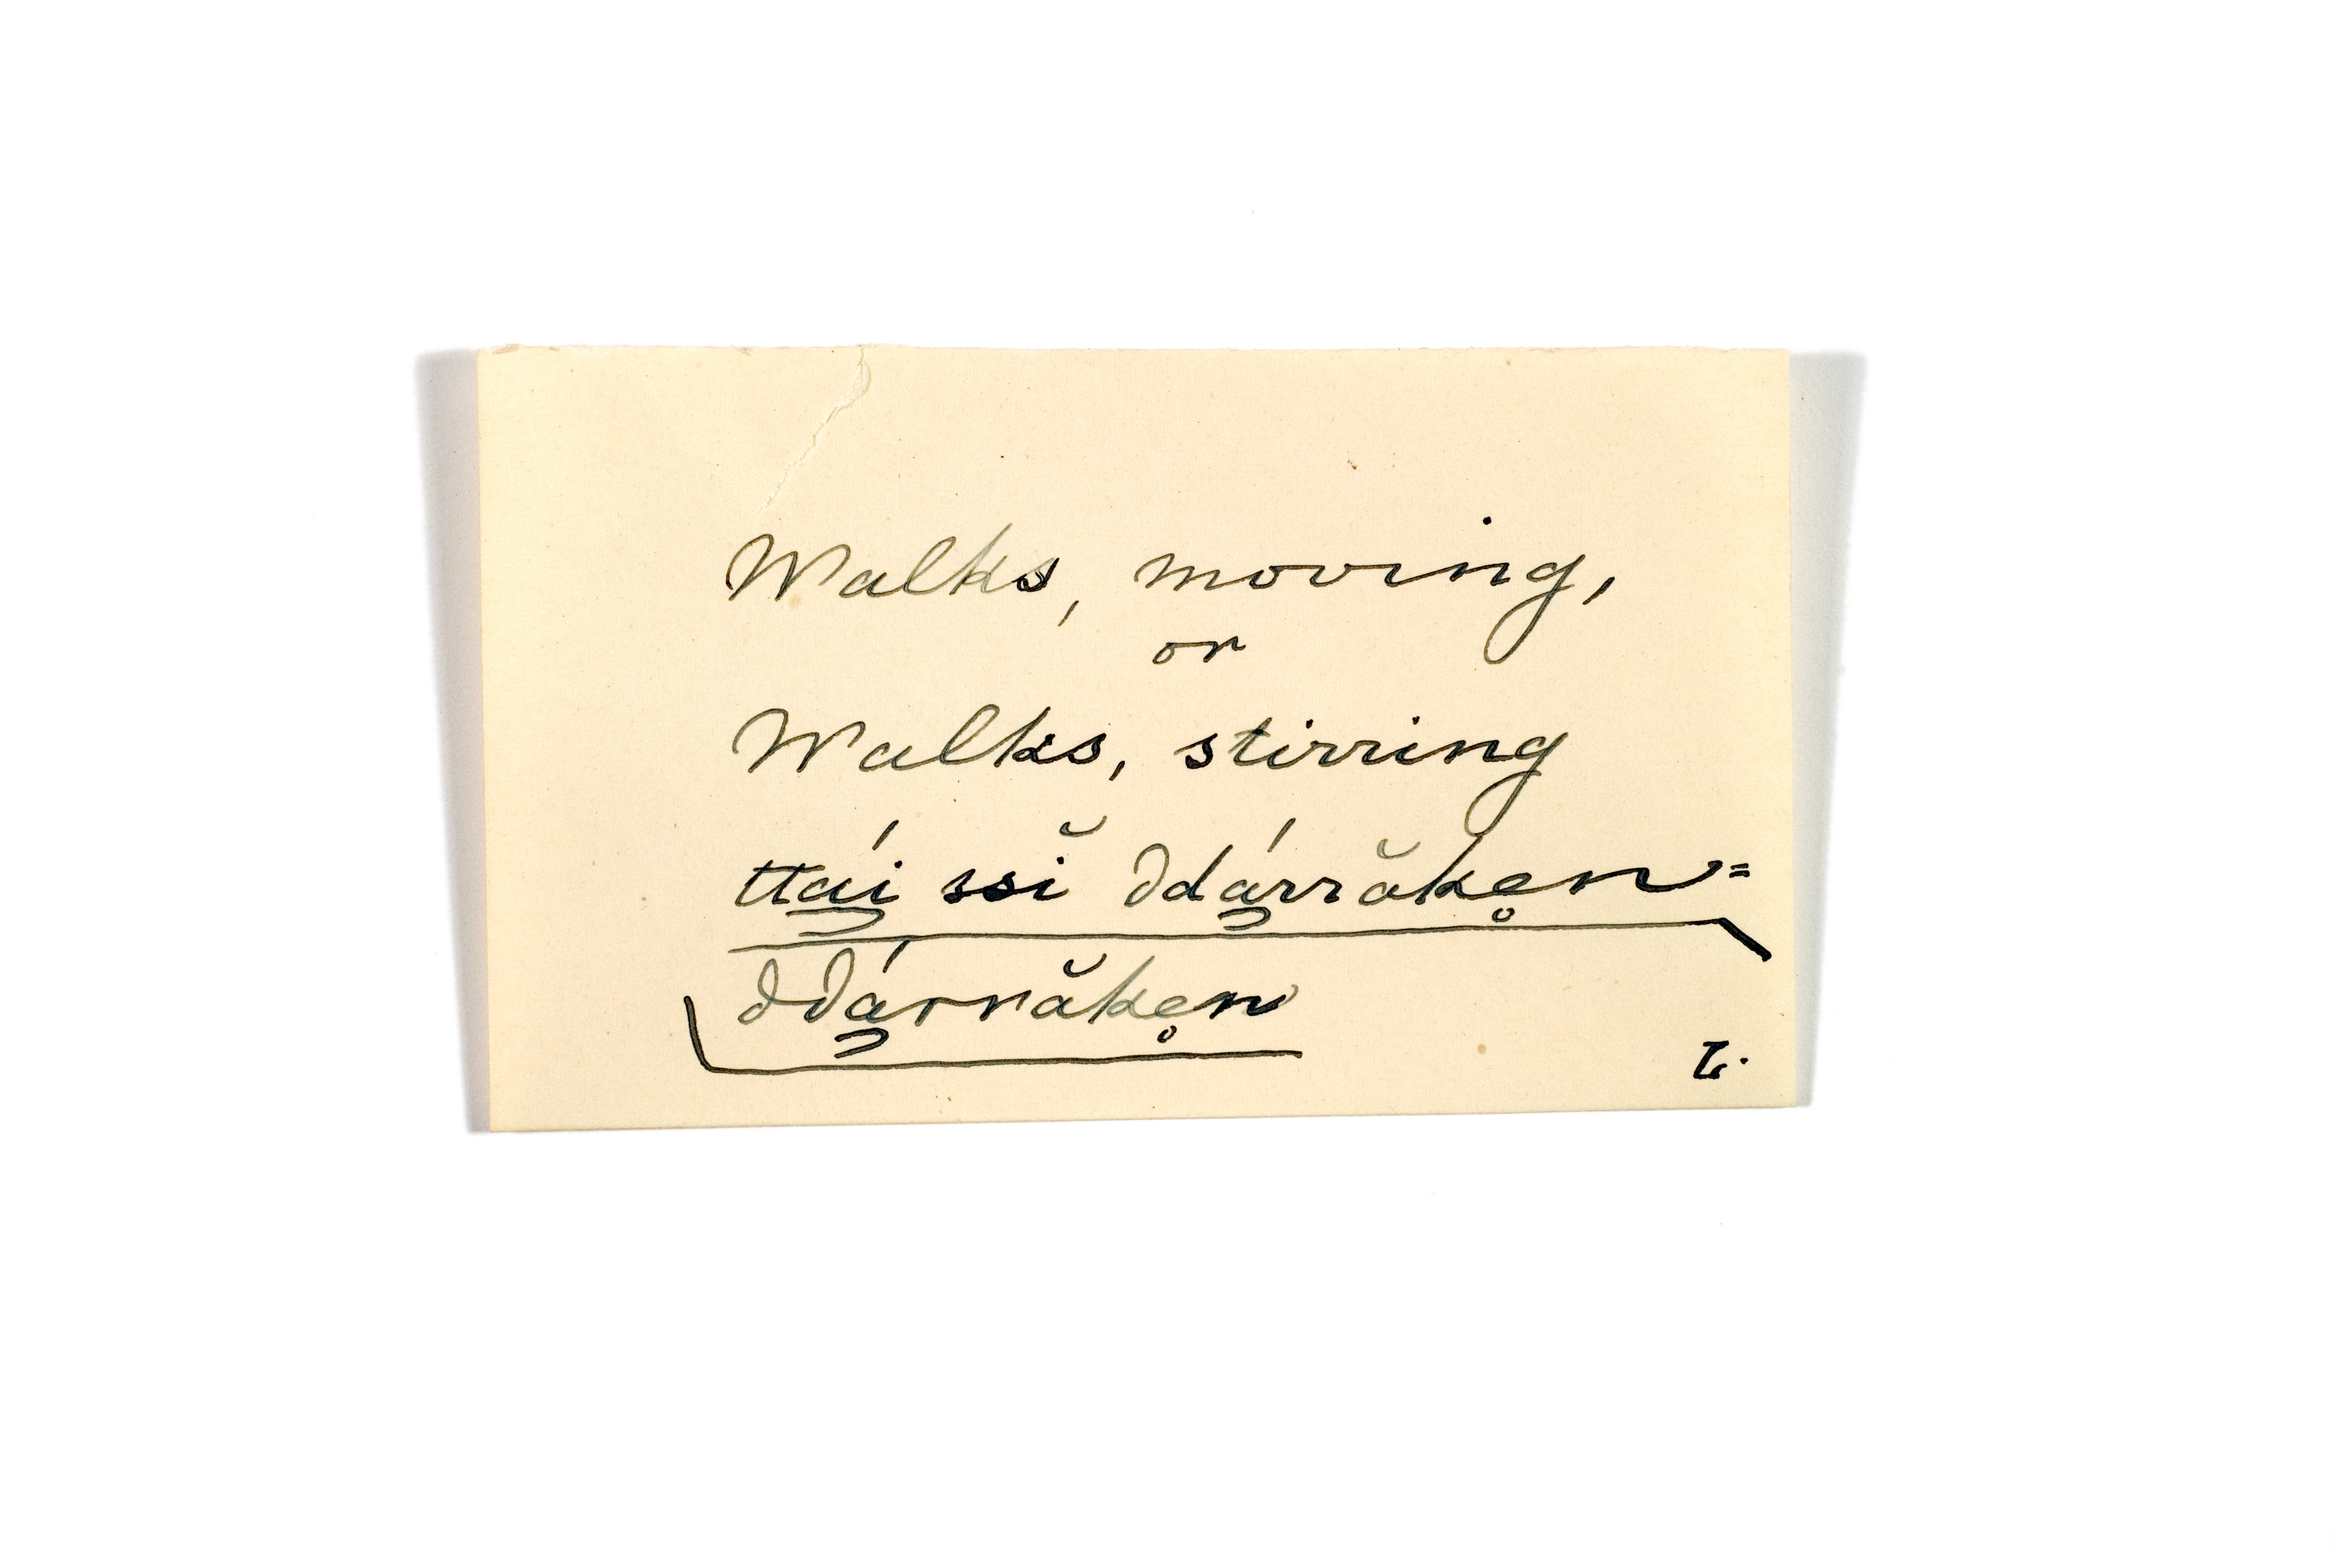 Walks, moving,
or
Walks, stirring
ttá̱i ssĭ ddá̱rrăke̥n=
ddá̱rrăke̥n
L.